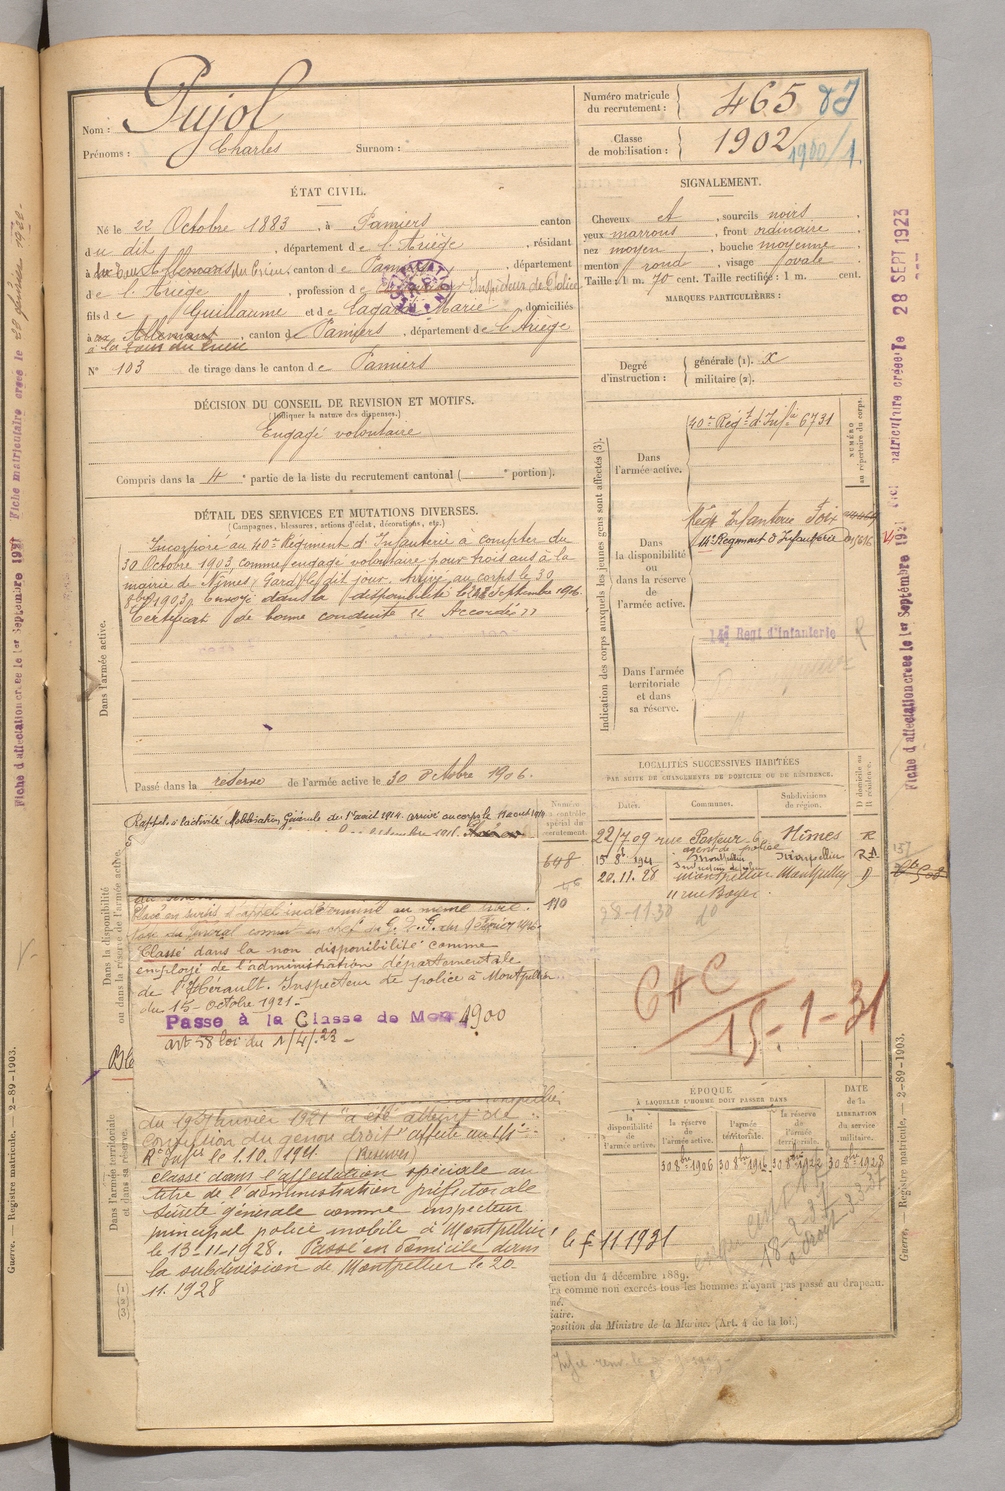 Nom : Pujol
Prénoms : Charles Surnom :
Numéro matricule du recrutement : 465
Classe de mobilisation : 1902
1900/1
ÉTAT CIVIL.
Né le 22 Octobre 1883, à Pamiers canton
du dit, département de l'Ariège, résidant
canton de Pamiers, département
de l'Ariège, profession de Inspecteur de Police
fils de Guillaume et de Marie, domiciliés
à canton de Pamiers, département de l'Ariège
à la Tour du Crieu
N° 103 de tirage dans le canton de Pamiers
DÉCISION DU CONSEIL DE REVISION ET MOTIFS.
(Indiquer la nature des dispenses.)
Engagé volontaire
Compris dans la 4e partie de la liste du recrutement cantonal ( e portion).
DÉTAIL DES SERVICES ET MUTATIONS DIVERSES.
(Campagnes, blessures, actions d'éclat, décorations, etc.)
Dans l'armée active.
Incorporé au 40e Régiment d'Infanterie à compter du
30 Octobre 1903, comme engagé volontaire pour trois ans à la
mairie de Nîmes (Gard) le dit jour. Arrivé au corps le 30
8bre 1903. Envoyé dans la disponibilité le Septembre 1906.
Certificat de bonne conduite "Accordé"
Passé dans la reserve de l'armée active le 30 octobre 1906.
SIGNALEMENT.
Cheveux et, sourcils noirs,
yeux marrons, front ordinaire,
nez moyen, bouche moyenne,
menton rond, visage ovale.
Taille : 1 m. 70 cent. Taille rectifiée : 1 m. cent.
MARQUES PARTICULIÈRES :
Degré d'instruction : générale (1). X
militaire (2).
Indication des corps auxquels les jeunes gens sont affectés (3).
NUMÉRO au répertoire du corps.
Dans l'armée active.
40e Régt d'Infie 6731
Dans la disponibilité ou dans la réserve de l'armée active.
Régt Infanterie Foix
14e Régiment d'Infanterie
Dans l'armée territoriale et dans sa réserve.
14e Regt d'infanterie
LOCALITÉS SUCCESSIVES HABITÉES
PAR SUITE DE CHANGEMENTS DE DOMICILE OU DE RÉSIDENCE.
Dates. Communes. Subdivisions de région. D domicile ou R résidence.
22/7.09 rue Pasteur 6 Nîmes R
agent de police
15 8 1921 Montpellier Montpellier
20.11.28 Montpellier Montpellier D
11 rue Boyer
28-1130
CAC
15-1-31
Numéro au contrôle spécial du recrutement.
648
110
Dans la disponibilité ou dans la réserve de l'armée active.
Rappelé à l'activité Mobilisation Générale du 1er août 1914. arrivé au corps le août 1914
Classé en sursis d'appel indéterminé au même titre.
Classé dans la non disponibilité comme
employé de l'administration départementale
de l'Hérault. Inspecteur de police à Montpellier
du 15 octobre 1921.
Passe à la Classe de Mob 1900
art 58 loi du 1/4/23
Dans l'armée territoriale et dans sa réserve.
du 19 Janvier 1921 "a été atteint de
Contusion du genou droit" affecté au
Rt Infie le 1.10.1921 (Réserves)
classé dans l'affectation spéciale au
titre de l'administration préfectorale
Sûreté générale comme inspecteur
principal police mobile à Montpellier
le 13-11-1928. Passé en domicile dans
la subdivision de Montpellier le 20
11.1928
ÉPOQUE
À LAQUELLE L'HOMME DOIT PASSER DANS
la disponibilité de l'armée active. la réserve de l'armée active. l'armée territoriale. la réserve de l'armée territoriale.
DATE de la LIBÉRATION du service militaire.
30 8bre 1906 30 8bre 1916 30 8bre 1922 30 8bre 1928
18-2-27
ruction du 4 décembre 1889.
ra comme non exercés tous les hommes n'ayant pas passé au drapeau.
né.
iaire.
position du Ministre de la Marine. (Art. 4 de la loi.)
Fiche d'affectation créée le 1er Septembre 1921
Fiche matriculaire créée le 28 SEPT 1923
Guerre. — Registre matricule. — 2-89-1903.
Fiche d'affectation créée le 1er Septembre 1921
Fiche matriculaire créée le
Guerre. — Registre matricule. — 2-89-1903.